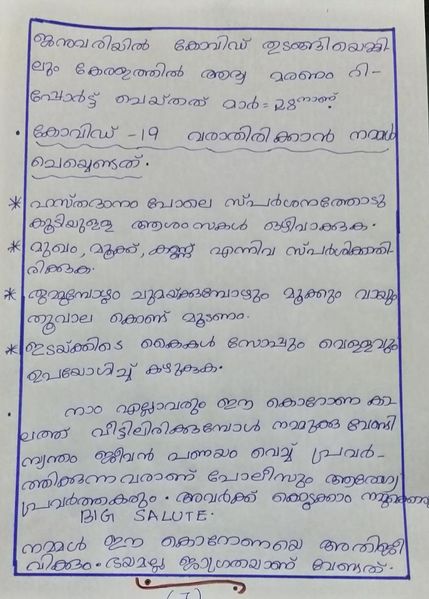 ജനുവരിയിൽ കോവിഡ് തുടങ്ങിയെങ്കി-
ലും കേരളത്തിൽ ആദ്യ മരണം റി-
പ്പോർട്ട് ചെയ്തത് മാർ=28നാണ്.
• കോവിഡ് -19 വരാതിരിക്കാൻ നമ്മൾ
ചെയ്യേണ്ടത്.
* ഹസ്തദാനം പോലെ സ്പർശനത്തോടു
കൂടിയുള്ള ആശംസകൾ ഒഴിവാക്കുക.
* മുഖം, മൂക്ക്, കണ്ണ് എന്നിവ സ്പർശിക്കാതി-
രിക്കുക.
* തുമ്മുമ്പോഴും ചുമയ്ക്കുമ്പോഴും മൂക്കും വായും
തൂവാല കൊണ്ട് മൂടണം.
* ഇടയ്ക്കിടെ കൈകൾ സോപ്പും വെള്ളവും
ഉപയോഗിച്ച് കഴുകുക.
നാം എല്ലാവരും ഈ കൊറോണ കാ
ലത്ത് വീട്ടിലിരിക്കുമ്പോൾ നമുക്കു വേണ്ടി
സ്വന്തം ജീവൻ പണയം വെച്ച് പ്രവർ-
ത്തിക്കുന്നവരാണ് പോലീസും ആരോഗ്യ
പ്രവർത്തകരും. അവർക്ക് കൊടുക്കാം നമുക്കൊരു
BIG SALUTE.
നമ്മൾ ഈ കൊറോണയെ അതിജീ
വിക്കും. ഭയമല്ല ജാഗ്രതയാണ് വേണ്ടത്.
(7)